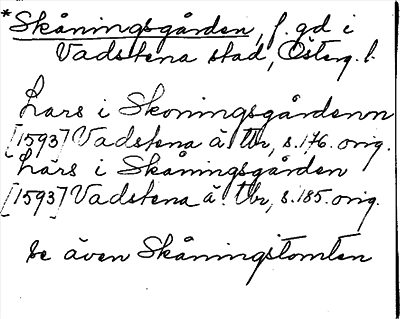 *Skåningsgården, f. gd i
Vadstena stad, Österg. l.
Lars i Skoningsgårdenn
[1593] Vadstena ä. tbr, s. 176. orig.
Lars i Skåningsgården
[1593] Vadstena ä. tbr, s. 185. orig.
se även Skåningstomten